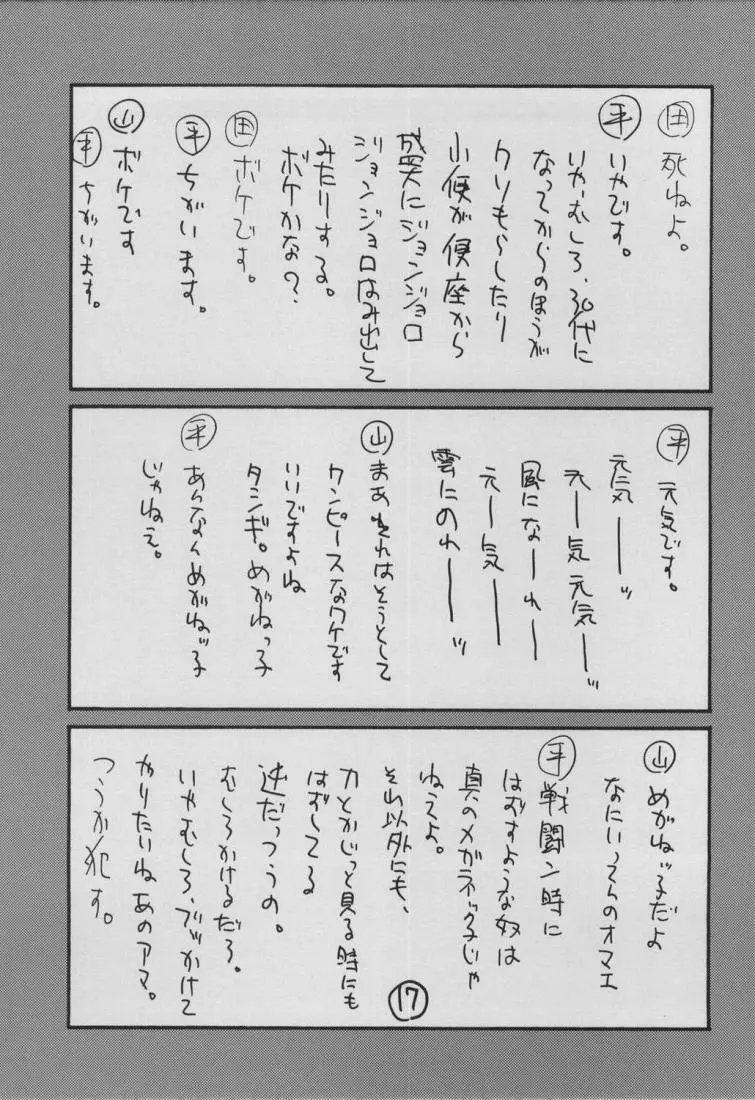 田 死ねよ。
平 いやです。
いや、むしろ、30代に
なってからのほうが
クソもらしたり
小便が便座から
盛大にジョンジョロ
ジョンジョロはみ出して
みたりする。
ボケかな?
田 ボケです。
平 ちがいます。
山 ボケです
平 ちがいます。
平 元気です。
元気ーッ
元ー気元気ーッ
風になーれー
元ー気ー
雲にのれーッ
山 まあそれはそうとして
ワンピースなワケです
いいですよね
タシギ。めがねっ子
平 あんなんめがねッ子
じゃねえ。
山 めがねッ子だよ
なにいってんのオマエ
平 戦闘ン時に
はずすような奴は
真のメガネッ子じゃ
ねえよ。
それ以外にも、
力とかじっと見る時にも
はずしてる
逆だっつうの。
むしろかけるだろ。
いやむしろ、ブッかけて
やりたいね あのアマ。
つうか犯す。
17